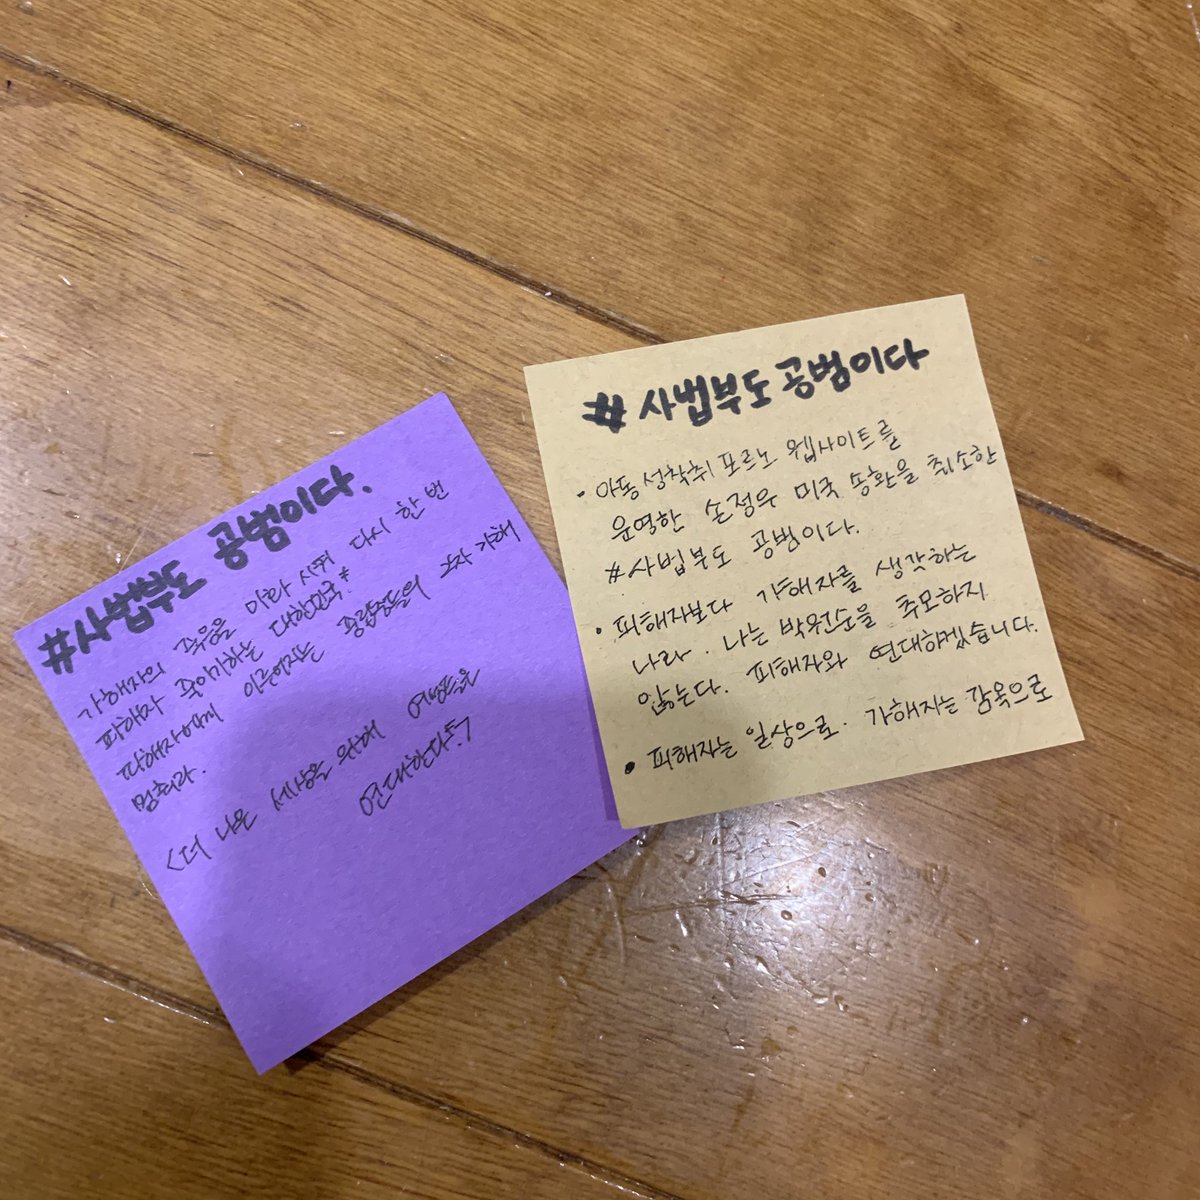 #사법부도 공범이다.
가해자의 죽음을 미화 시켜 다시 한 번
피해자 죽이기하는 대한민국.
피해자에게 이루어지는 중립충들의 2차 가해
멈춰라.
<더 나은 세상을 위해 여성들은
연대한다!>
#사법부도 공범이다
• 아동 성착취 포르노 웹사이트를
운영한 손정우 미국 송환을 취소한
#사법부도 공범이다.
• 피해자보다 가해자를 생각하는
나라. 나는 박원순을 추모하지
않는다. 피해자와 연대하겠습니다.
• 피해자는 일상으로. 가해자는 감옥으로